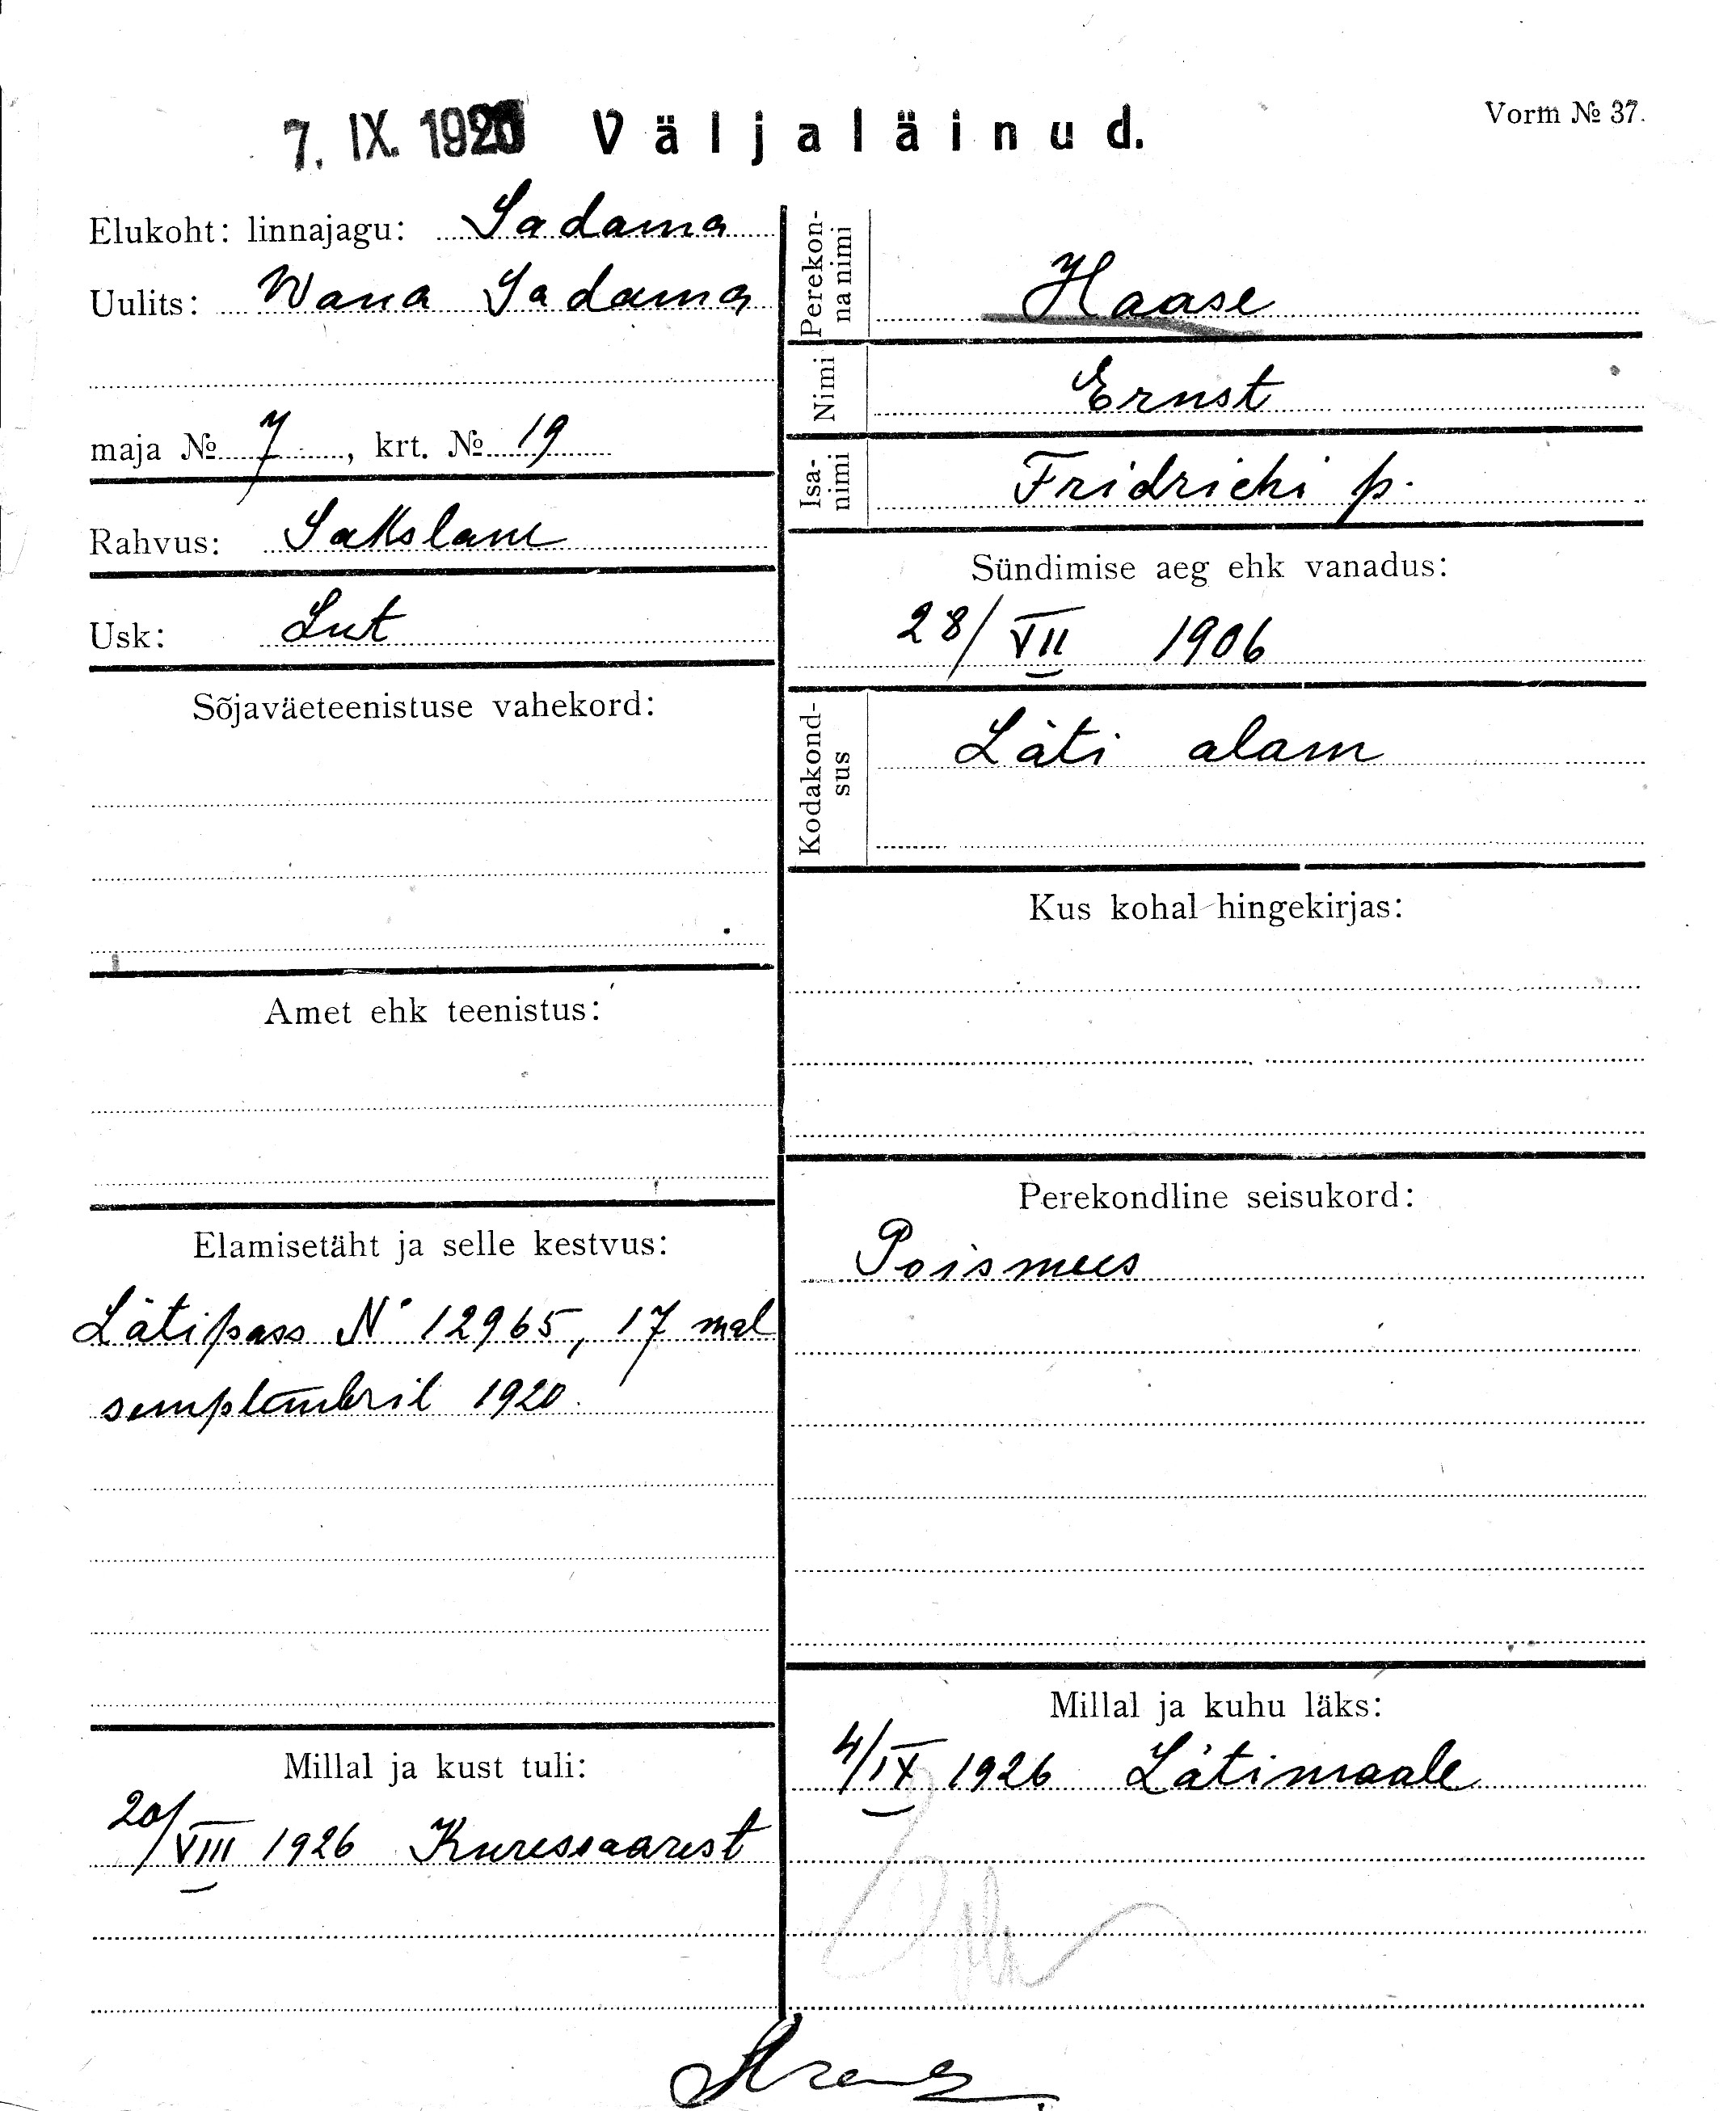 7. IX. 1926 Väljaläinud.
Vorm № 37.
Elukoht: linnajagu: Sadama
Uulits: Wana Sadama
maja № 7, krt. № 19
Rahvus: Sakslane
Usk: Lut
Sõjaväeteenistuse vahekord:
Amet ehk teenistus:
Elamisetäht ja selle kestvus:
Lätipass N° 12965, 17 mal
semptembril 1920.
Millal ja kust tuli:
20/VIII 1926 Kuressaarest
Perekon-
na nimi
Haase
Nimi
Ernst
Isa-
nimi
Fridrichi p.
Sündimise aeg ehk vanadus:
28/VII 1906
Kodakond-
sus
Läti alam
Kus kohal hingekirjas:
Perekondline seisukord:
Poismees
Millal ja kuhu läks:
4/IX 1926 Lätimaale